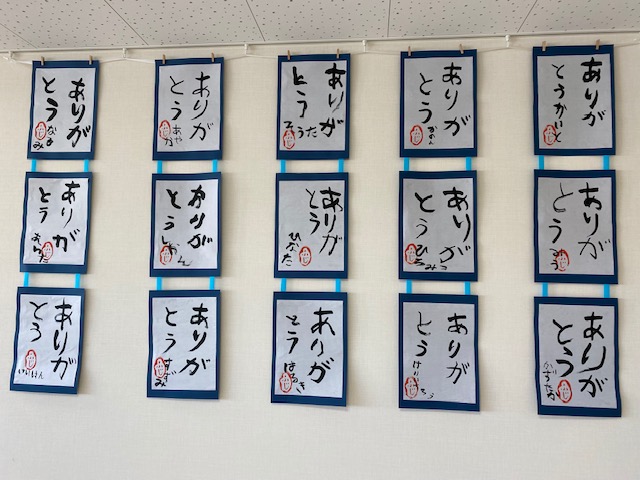 ありが
とう
ななみ
ありが
とう
あやか
ありが
とう
そうた
ありが
とう
かのん
ありが
とう
かいと
ありが
とう
ありが
とう
しおん
ありが
とう
ひなた
ありが
とう
ありが
とう
みう
ありが
とう
ありが
とう
すずみ
ありが
とう
はるき
ありが
とう
ありが
とう
かずたか